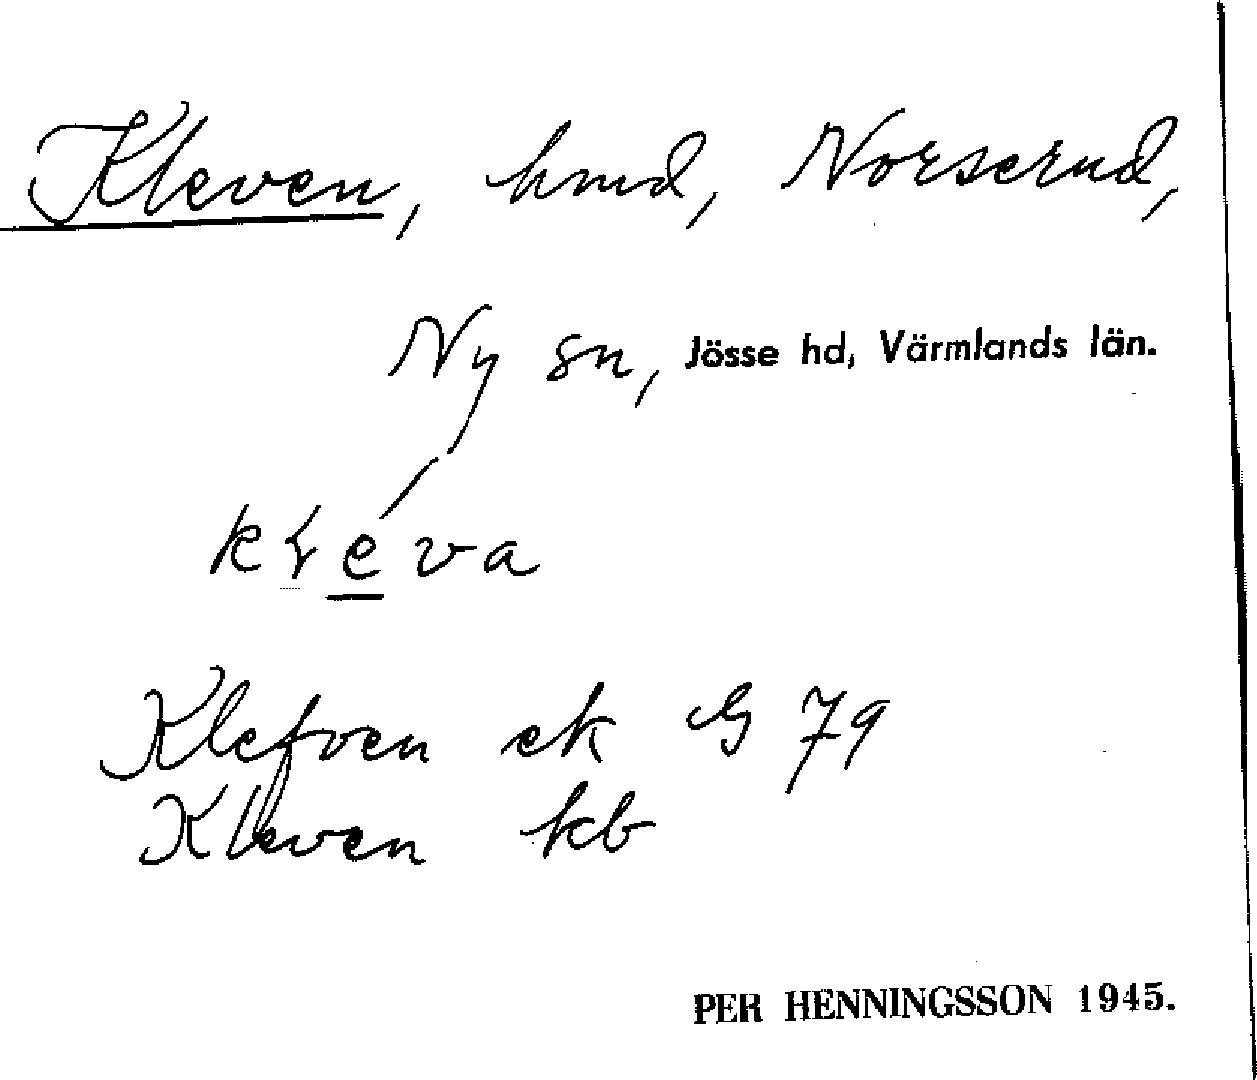 Kleven, hmd, Norserud,
Ny sn, Jösse hd, Värmlands län.
klé̱va
Klefven ek G 79
Kleven kb
PER HENNINGSSON 1945.